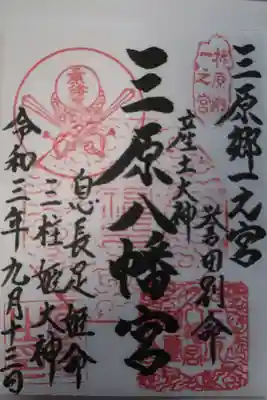 一之宮
三原郷一之宮
誉田別命
産土大神
三原八幡宮
息長足姫命
三柱姫大神
令和三年九月十三日